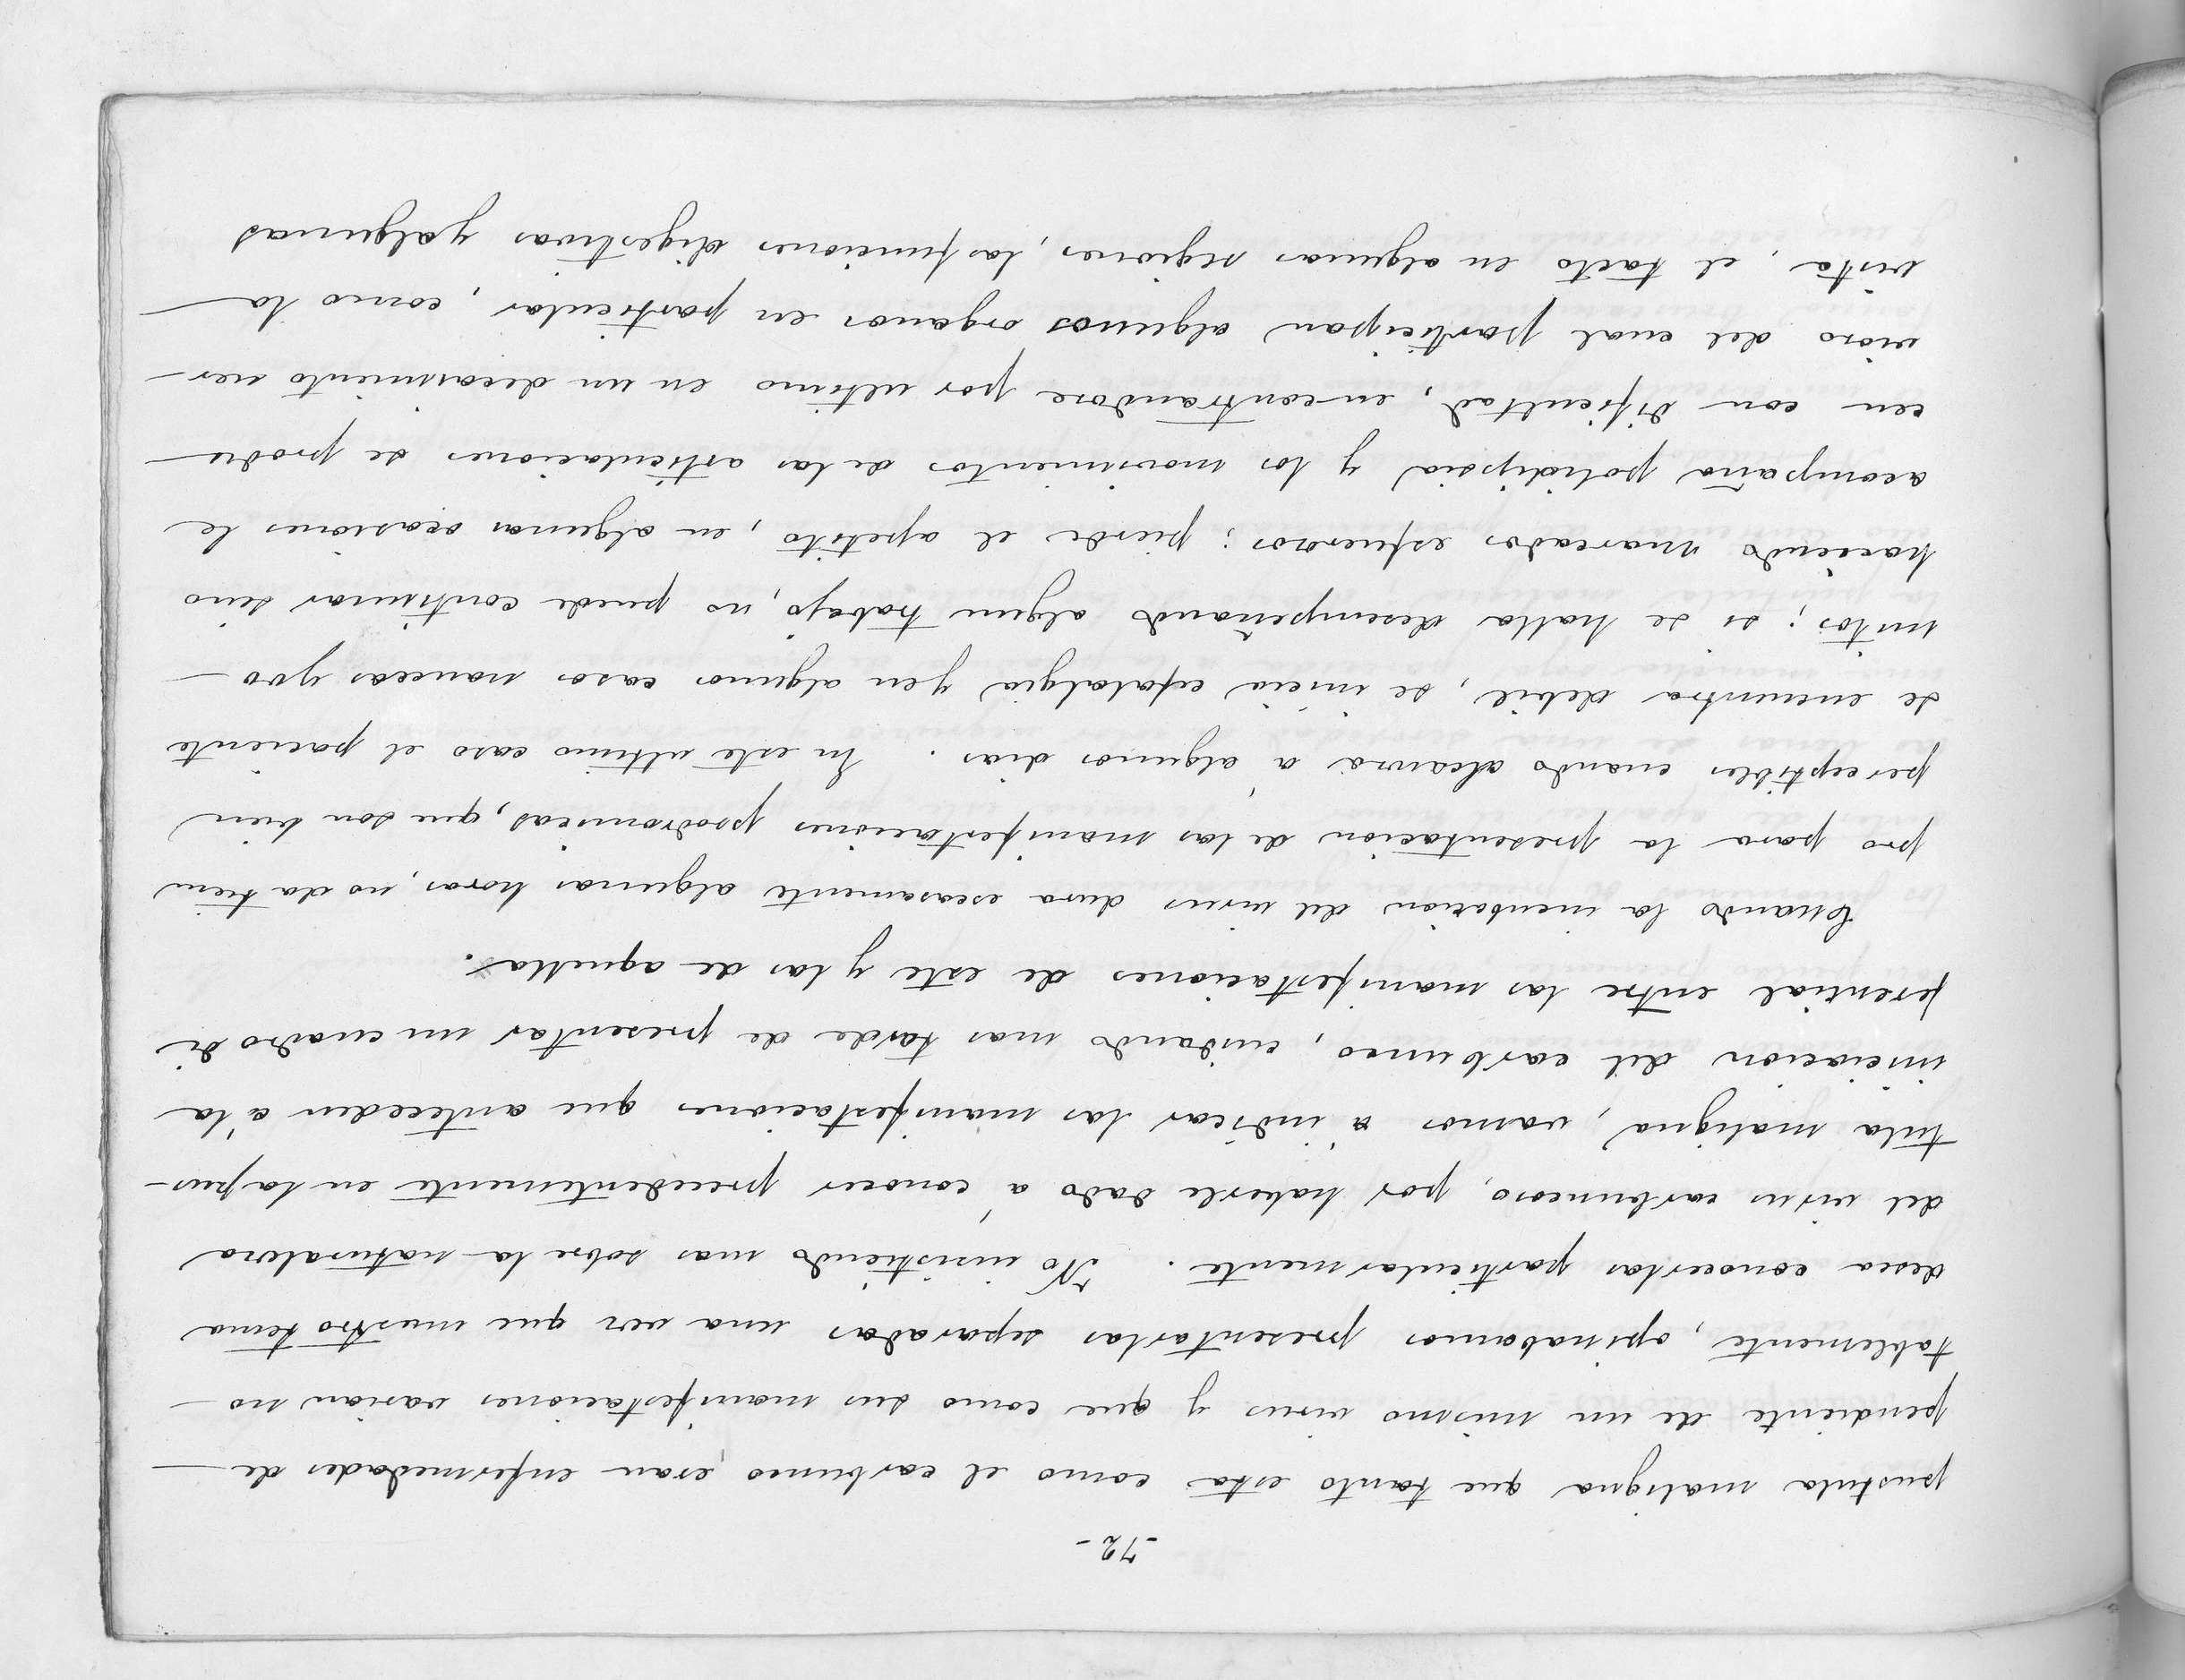 -72-
pustula maligna que tanto esta como el carbunco eran enfermedades de-
pendiente de un mismo virus y que como sus manifestaciones varian no-
tablemente, opinabamos presentarlas separadas una vez que nuestro tema
desea conocerlas particularmente. No insistiendo mas sobre la naturaleza
del virus carbuncoso, por haberle dado á conocer precedentemente en la pus-
tula maligna, vamos á indicar las manifestaciones que anteceden á la
iniciacion del carbunco, cuidando mas tarde de presentar un cuadro di
ferential entre las manifestaciones de este y las de aquella.
Cuando la incubacion del virus dura escasamente algunas horas, no da tiem
po para la presentacion de las manifestaciones prodromicas, que son bien
perceptibles cuando alcanza á algunos dias. En este ultimo caso el paciente
se encuentra debil, se inicia cefalalgia y en algunos casos nauceas y vo-
mitos; si se halla desempeñando algun trabajo, no puede continuar sino
haciendo marcados esfuerzos; pierde el apetito, en algunas ocasiones le
acompaña polidipsia y los movimientos de las articulaciones se produ-
cen con dificultad, encontrandose por ultimo en un decaimiento ner-
vioso del cual participan algunos organos en particular, como la
vista, el tacto en algunas regiones, las funciones digestivas y algunas